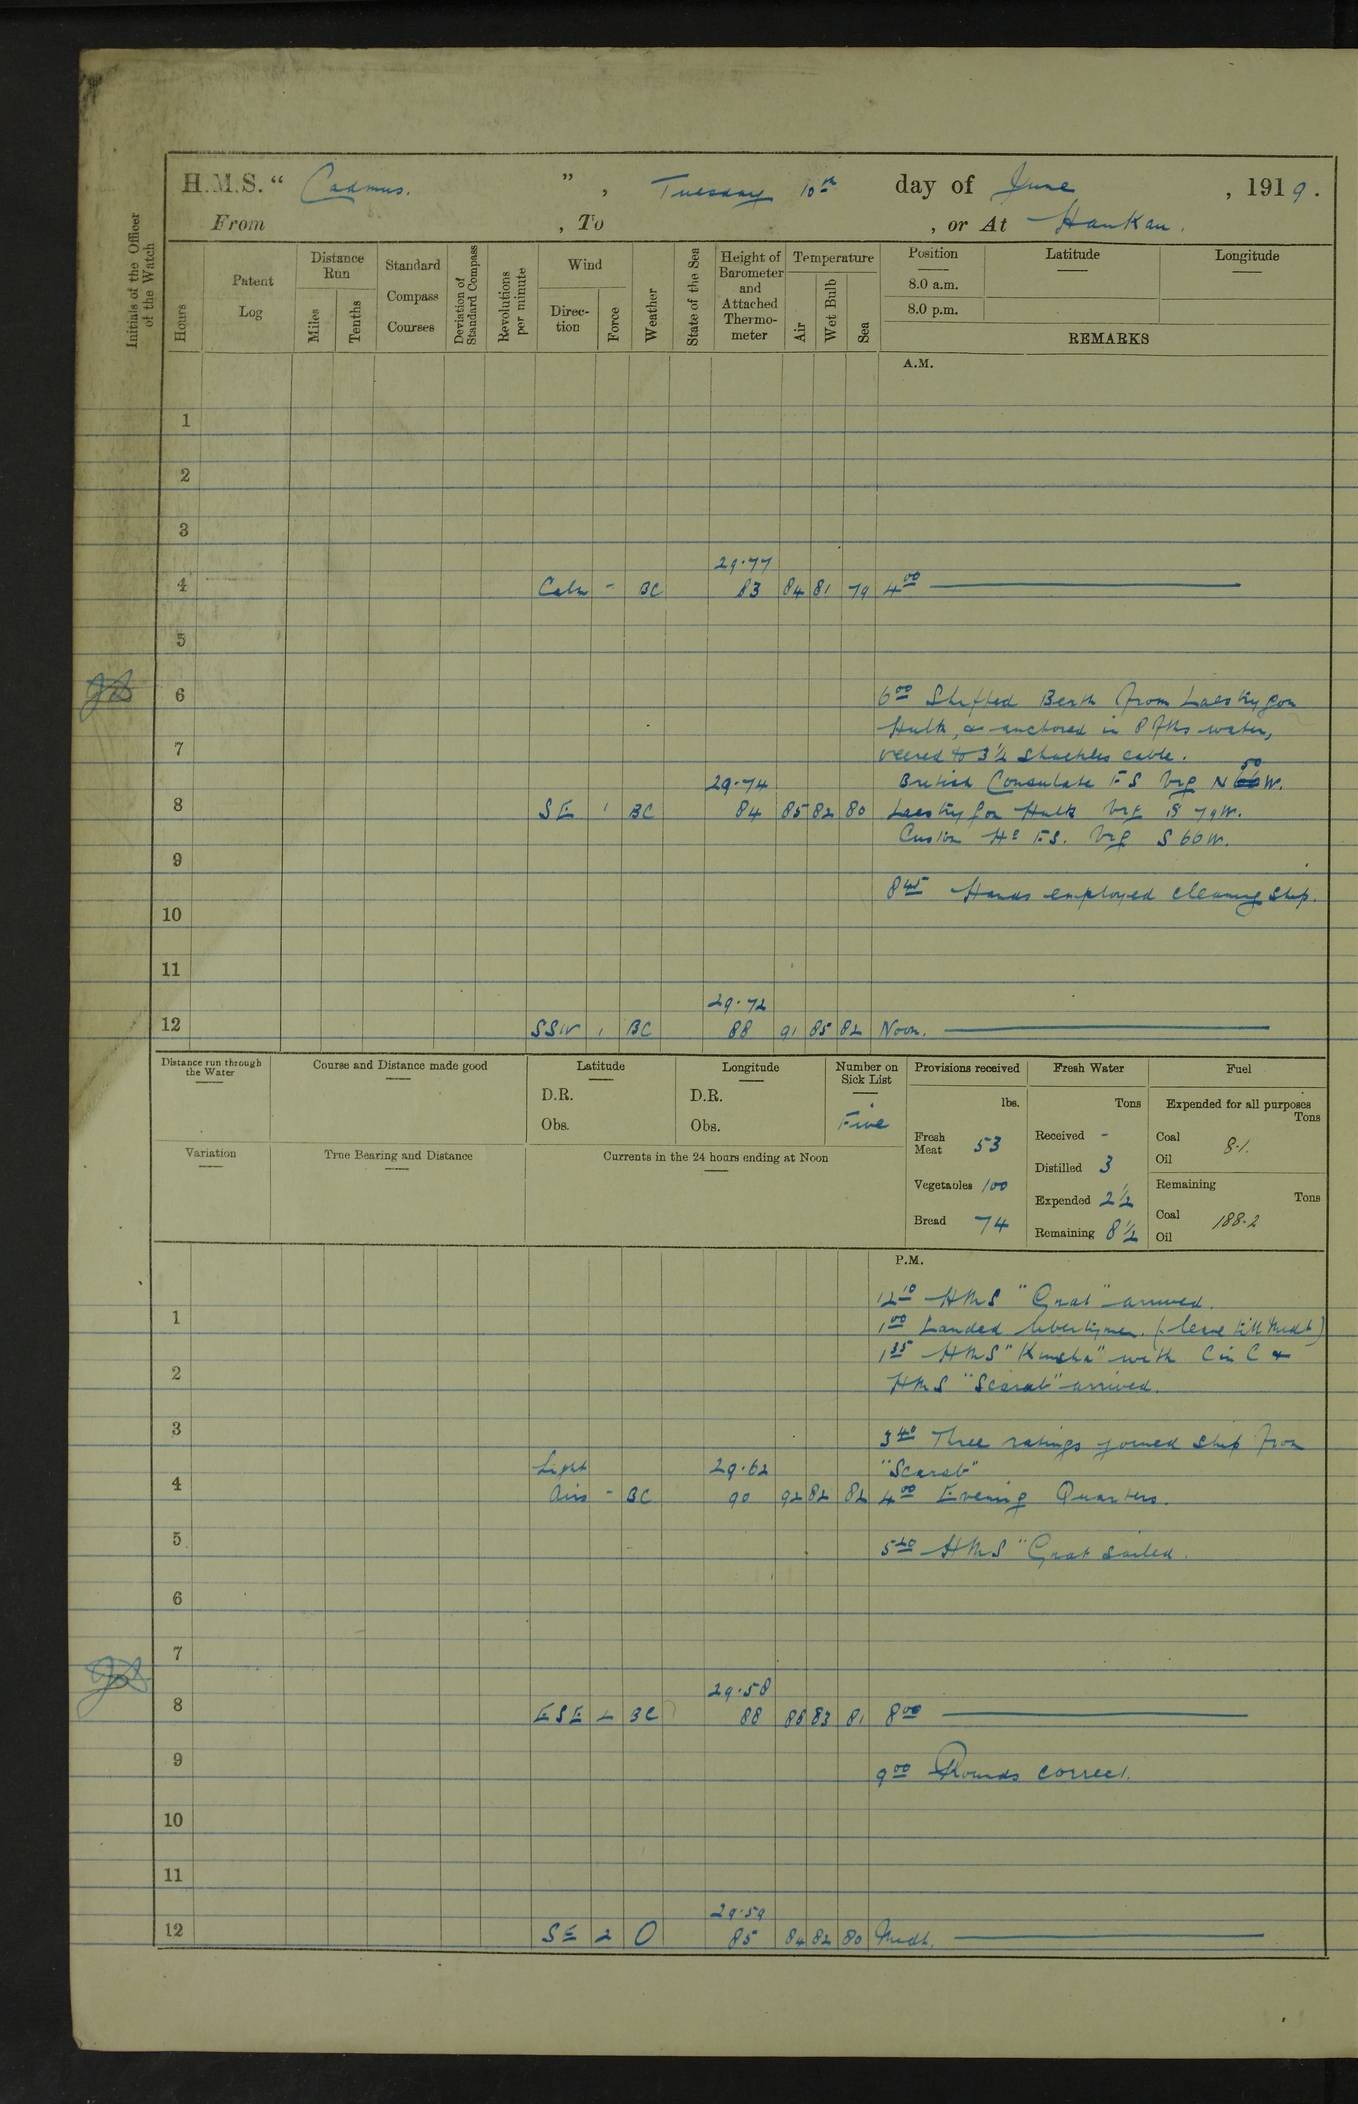 H.M.S. “ Cadmus. ” , Tuesday 10th day of June , 1919.
From , To , or At Hankau.
Initials of the Officer of the Watch
Hours
Patent Log
Distance Run
Miles
Tenths
Standard Compass Courses
Deviation of Standard Compass
Revolutions per minute
Wind
Direction
Force
Weather
State of the Sea
Height of Barometer and Attached Thermometer
Temperature
Air
Wet Bulb
Sea
Position
Latitude
Longitude
8.0 a.m.
8.0 p.m.
REMARKS
A.M.
1
2
3
29.77
4 Calm - BC 83 84 81 79 4 00
5
6 6 00 Shifted Berth from Laestrygon
Hulk, & anchored in 8 fms water,
7 veered to 3½ shackles cable.
29.74 British Consulate FS brg N 66 50 W.
8 SE 1 BC 84 85 82 80 Laestrygon Hulk brg S 79 W.
Custom Ho FS. brg S 66 W.
9
8 45 Hands employed cleaning ship.
10
11
29.72
12 SSW 1 BC 88 91 85 82 Noon.
Distance run through the Water
Course and Distance made good
Latitude
D.R.
Obs.
Longitude
D.R.
Obs.
Number on Sick List
Five
Provisions received
lbs.
Fresh Meat 53
Vegetables 100
Bread 74
Fresh Water
Tons
Received -
Distilled 3
Expended 2½
Remaining 8½
Fuel
Expended for all purposes
Tons
Coal 8.1.
Oil
Remaining
Tons
Coal 188.2
Oil
Variation
True Bearing and Distance
Currents in the 24 hours ending at Noon
P.M.
12 10 HMS "Gnat" arrived.
1 1 00 Landed libertymen. (leave till Midt)
1 35 HMS "Kinsha" with C in C &
2 HMS "Scarab" arrived.
3 3 40 Three ratings joined ship from
Light 29.62 "Scarab"
4 Airs - BC 90 92 82 82 4 00 Evening Quarters.
5 5 20 HMS "Gnat sailed.
6
7
29.58
8 ESE 2 BC 88 88 83 81 8 00
9 9 00 Rounds correct.
10
11
29.59
12 SE 2 O 85 84 82 80 Midt.